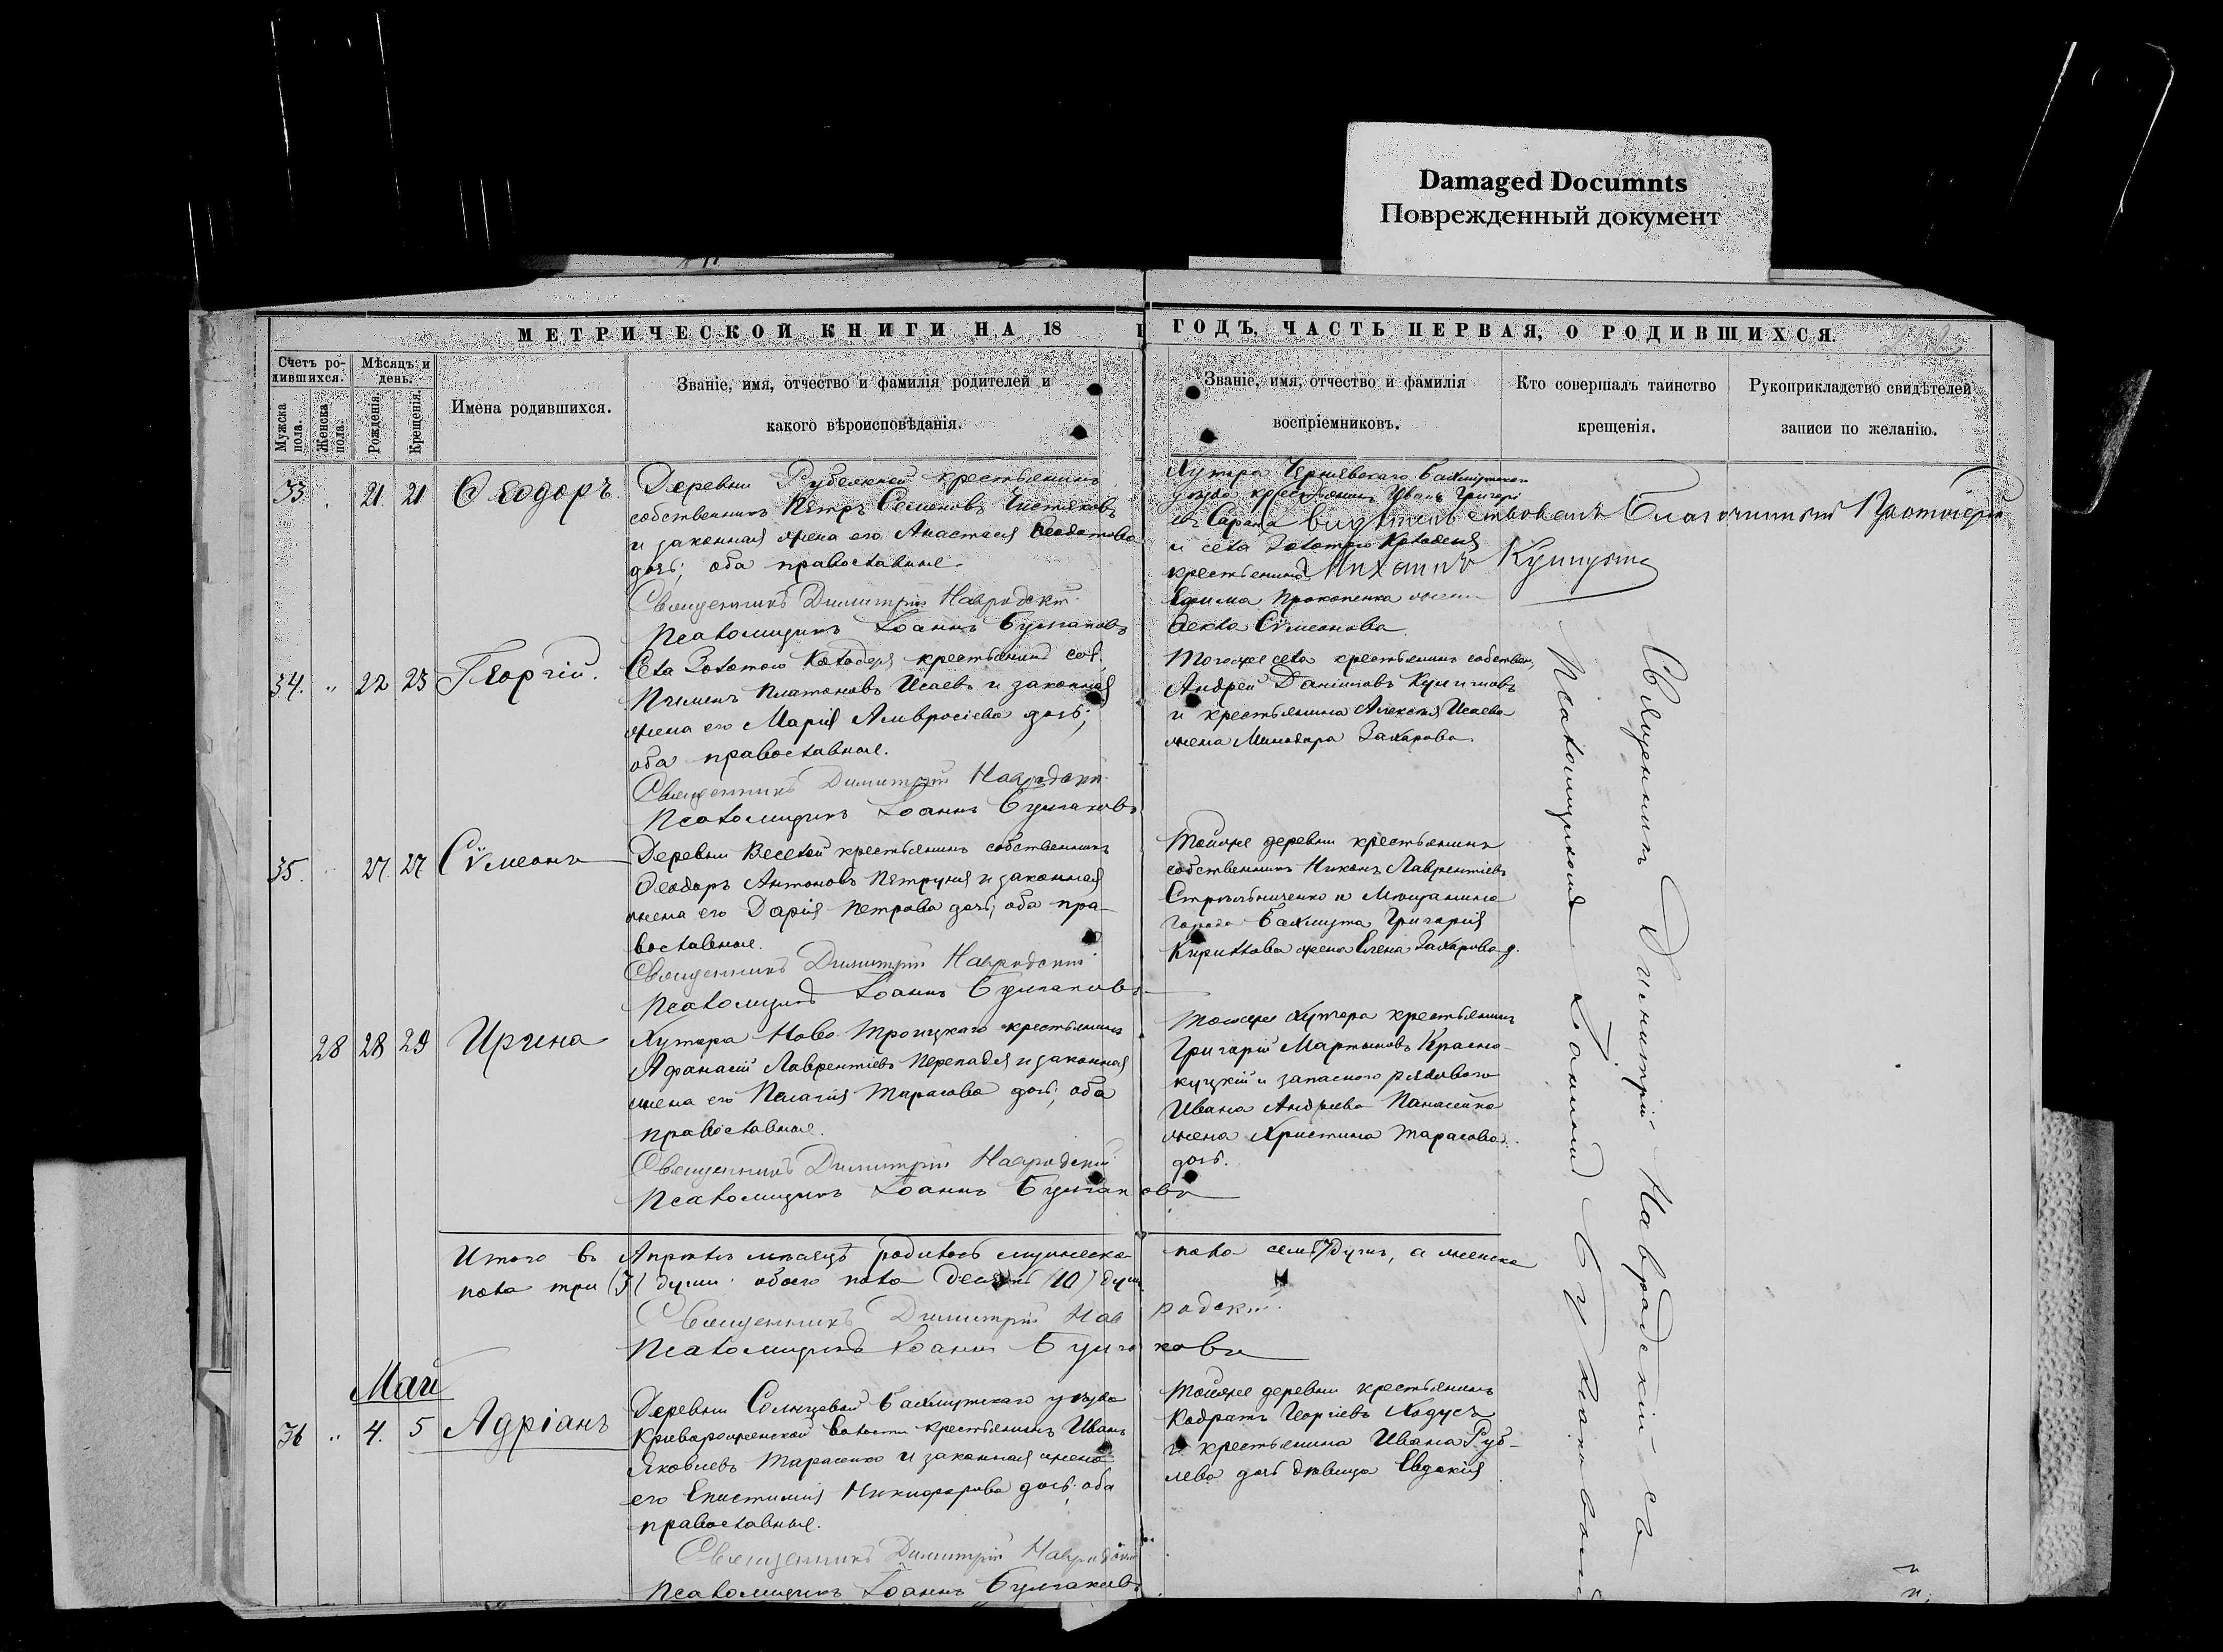 Damaged Documnts
Поврежденный документ
МЕТРИЧЕСКОЙ КНИГИ НА 18
ГОДЪ, ЧАСТЬ ПЕРВАЯ, О РОДИВШИХСЯ.
Счетъ ро-
дившихся.
Мѣсяцъ и
день.
Мужска
пола.
Женска
пола.
Рожденія.
Крещенія.
Имена родившихся.
Званіе, имя, отчество и фамилія родителей и
какого вѣроисповѣданія.
Званіе, имя, отчество и фамилія
воспріемниковъ.
Кто совершалъ таинство
крещенія.
Рукоприкладство свидѣтелей
записи по желанію.
33. 21. 21 Ѳеодоръ.
Деревни Рубежной крестьянинъ
собственникъ Петръ Семеновъ Чистяковъ
и законная жена его Анастасія
дочь; оба православные.
Священникъ Димитрій Навродскій
Псаломщикъ Іоаннъ Булгаковъ
Хутора Чернявскаго Бахмутскаго
уѣзда крестьянинъ Иванъ Григорі
евъ
и села Золотого Колодезя
крестьянина
Ефима Прокопенка жена
Ѳекла Сѵмеонова
свидѣтельствовалъ Благочинный Протоіерей
Михаилъ
34. " 22 23 Георгій.
Села Золотого Колодезя крестьянинъ соб.
Пименъ Платоновъ Исаевъ и законная
жена его Марія Амвросіева дочь;
оба православные.
Священникъ Димитрій Навродскій
Псаломщикъ Іоаннъ Булгаковъ
Тогоже села крестьянинъ собствен.
Андрей Даніиловъ
и крестьянина Алексѣя Исаева
жена Минодора Захарова
35. 27. 27 Сѵмеонъ
Деревни Веселой крестьянинъ собственникъ
Ѳеодоръ Антоновъ Петруня и законная
жена его Дарія Петрова дочь; оба пра-
вославные.
Священникъ Димитрій Навродскій
Псаломщикъ Іоаннъ Булгаковъ
Тойже деревни крестьянинъ
собственникъ Никонъ Лаврентіевъ
Стрѣльниченко и Мѣщанина
города Бахмута Григорія
Кириллова жена Елена Захарова д.
28 28 29 Ирина
Хутора Ново Троицкаго крестьянинъ
Афанасій Лаврентіевъ Перепадя и законная
жена его Пелагія Тарасова дочь; оба
православные.
Священникъ Димитрій Навродскій
Псаломщикъ Іоаннъ Булгаковъ
Тогоже хутора крестьянинъ
Григорій Мартыновъ Красно-
куцкій и запаснаго рядового
Ивана Андреева Панасейко
жена Христина Тарасова
дочь.
Итого въ Апрѣлѣ мѣсяцѣ родилось мужеска пола семь (7) душъ, а женска
пола три (3) души. обоего пола десять (10) душъ
Священникъ Димитрій Навродскій
Псаломщикъ Іоаннъ Булгаковъ
Май
36 " 4. 5 Адріанъ
Деревни Солнцевой Бахмутскаго уѣзда
Криворожской волости крестьянинъ Иванъ
Яковлевъ Тарасенко и законная жена
его Епистимія Никифорова дочь; оба
православные.
Священникъ Димитрій Навродскій
Псаломщикъ Іоаннъ Булгаковъ
Тойже деревни крестьянинъ
Кодратъ Георгіевъ Ходусъ
и крестьянина Ивана Руб-
лева дочь дѣвица Евдокія
Священникъ Димитрій Навродскій съ
Псаломщикомъ Іоанномъ Булгаковымъ